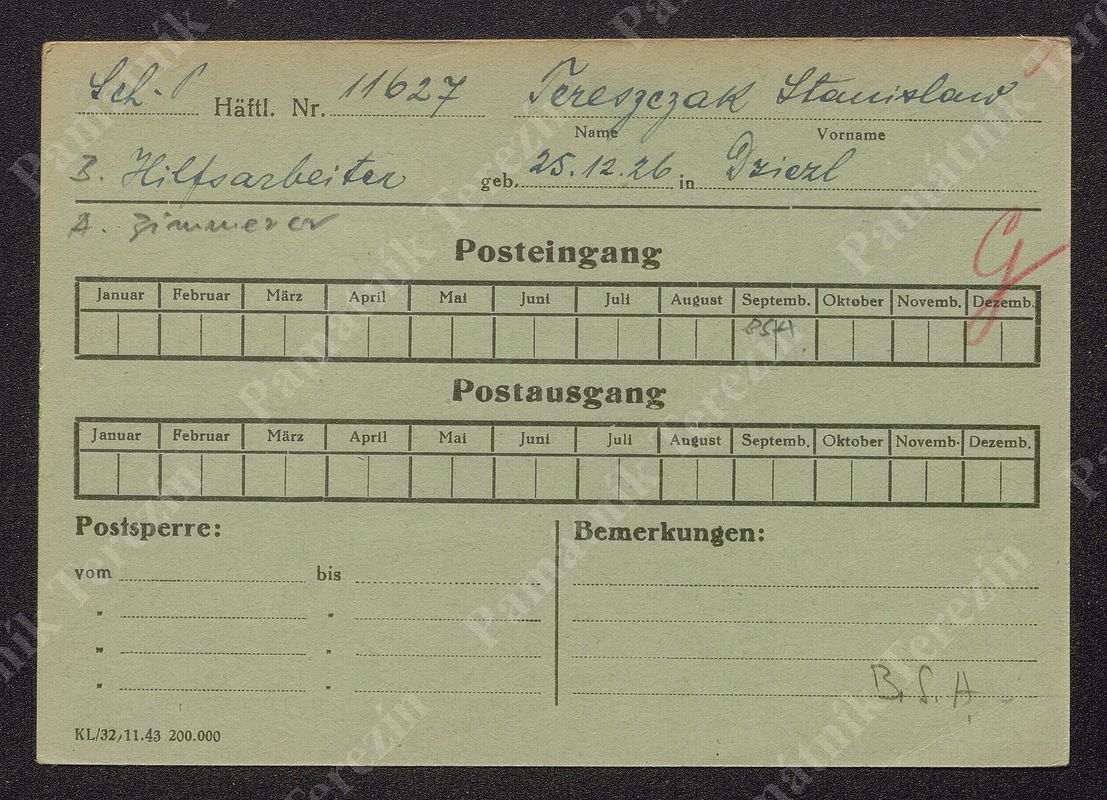 Sch-P Häftl. Nr. 11627 Tereszczak Stanislaw
Name Vorname
B. Hilfsarbeiter geb. 25.12.26 in Dziezl
A. Zimmerer
G
Posteingang
Januar Februar März April Mai Juni Juli August Septemb. Oktober Novemb. Dezemb.
BSH
Postausgang
Januar Februar März April Mai Juni Juli August Septemb. Oktober Novemb. Dezemb.
Postsperre: Bemerkungen:
vom bis
" "
" "
" "
B. S. A -
KL/32/11.43 200.000
Památník Terezín